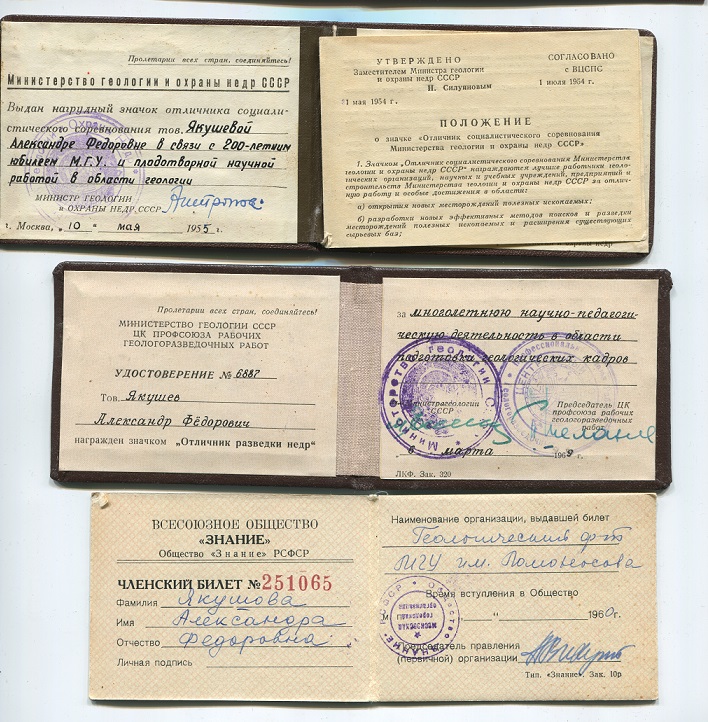 Пролетарии всех стран, соединяйтесь!
Министерство геологии и охраны недр СССР
Выдан нагрудный значок отличника социали-
стического соревнования тов. Якушевой
Александре Федоровне в связи с 200-летним
юбилеем М.Г.У. и плодотворной научной
работой в области геологии
МИНИСТР ГЕОЛОГИИ
И ОХРАНЫ НЕДР СССР
г. Москва, „10" мая 1955 г.
УТВЕРЖДЕНО
Заместителем Министра геологии
и охраны недр СССР
П. Силуяновым
1 мая 1954 г.
СОГЛАСОВАНО
с ВЦСПС
1 июля 1954 г.
ПОЛОЖЕНИЕ
о значке «Отличник социалистического соревнования
Министерства геологии и охраны недр СССР»
1. Значком „Отличник социалистического соревнования Министерства
геологии и охраны недр СССР" награждаются лучшие работники геоло-
гических организаций, научных и учебных учреждений, предприятий и
строительств Министерства геологии и охраны недр СССР за отлич-
ную работу и особые достижения в области:
а) открытия новых месторождений полезных ископаемых;
б) разработки новых эффективных методов поисков и разведки
месторождений полезных ископаемых и расширения существующих
сырьевых баз;
Пролетарии всех стран, соединяйтесь!
МИНИСТЕРСТВО ГЕОЛОГИИ СССР
ЦК ПРОФСОЮЗА РАБОЧИХ
ГЕОЛОГОРАЗВЕДОЧНЫХ РАБОТ
УДОСТОВЕРЕНИЕ № 6887
Тов. Якушев
Александр Фёдорович
награжден значком „Отличник разведки недр"
за многолетнюю научно-педагоги-
ческую деятельность в области
подготовки геологических кадров
Министр геологии
СССР
Председатель ЦК
профсоюза рабочих
геологоразведочных
работ
6 марта 1969 г.
ЛКФ. Зак. 320
ВСЕСОЮЗНОЕ ОБЩЕСТВО
«ЗНАНИЕ»
Общество «Знание» РСФСР
ЧЛЕНСКИЙ БИЛЕТ № 251065
Фамилия Якушова
Имя Александра
Отчество Федоровна
Личная подпись
Наименование организации, выдавшей билет
Геологический ф-т
МГУ им. Ломоносова
Время вступления в Общество
„ 1960 г.
Председатель правления
(первичной) организации
Тип. „Знание". Зак. 10р